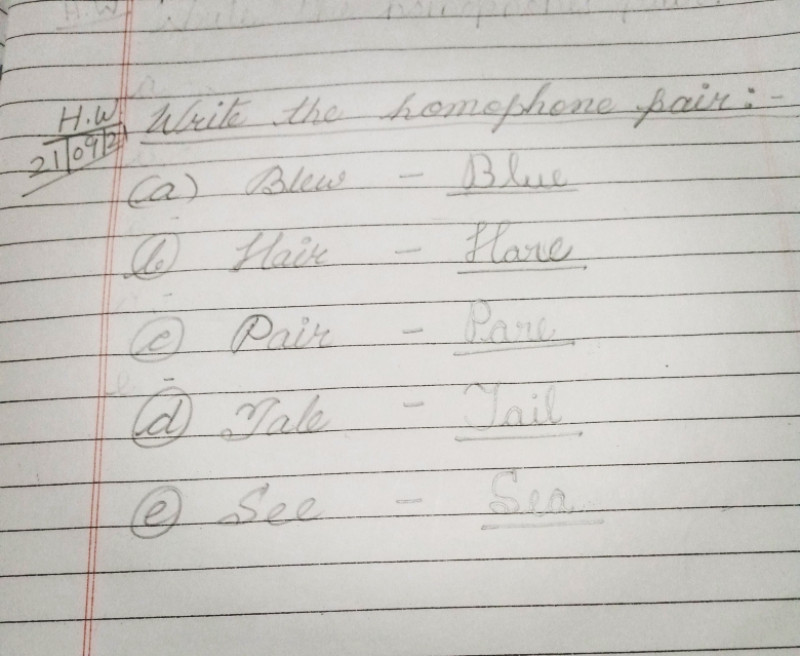 H.W
21/09/21
Write the homophone pair:-
(a) Blew - Blue
(b) Hair - Hare
(c) Pair - Pare
(d) Tale - Tail
(e) See - Sea